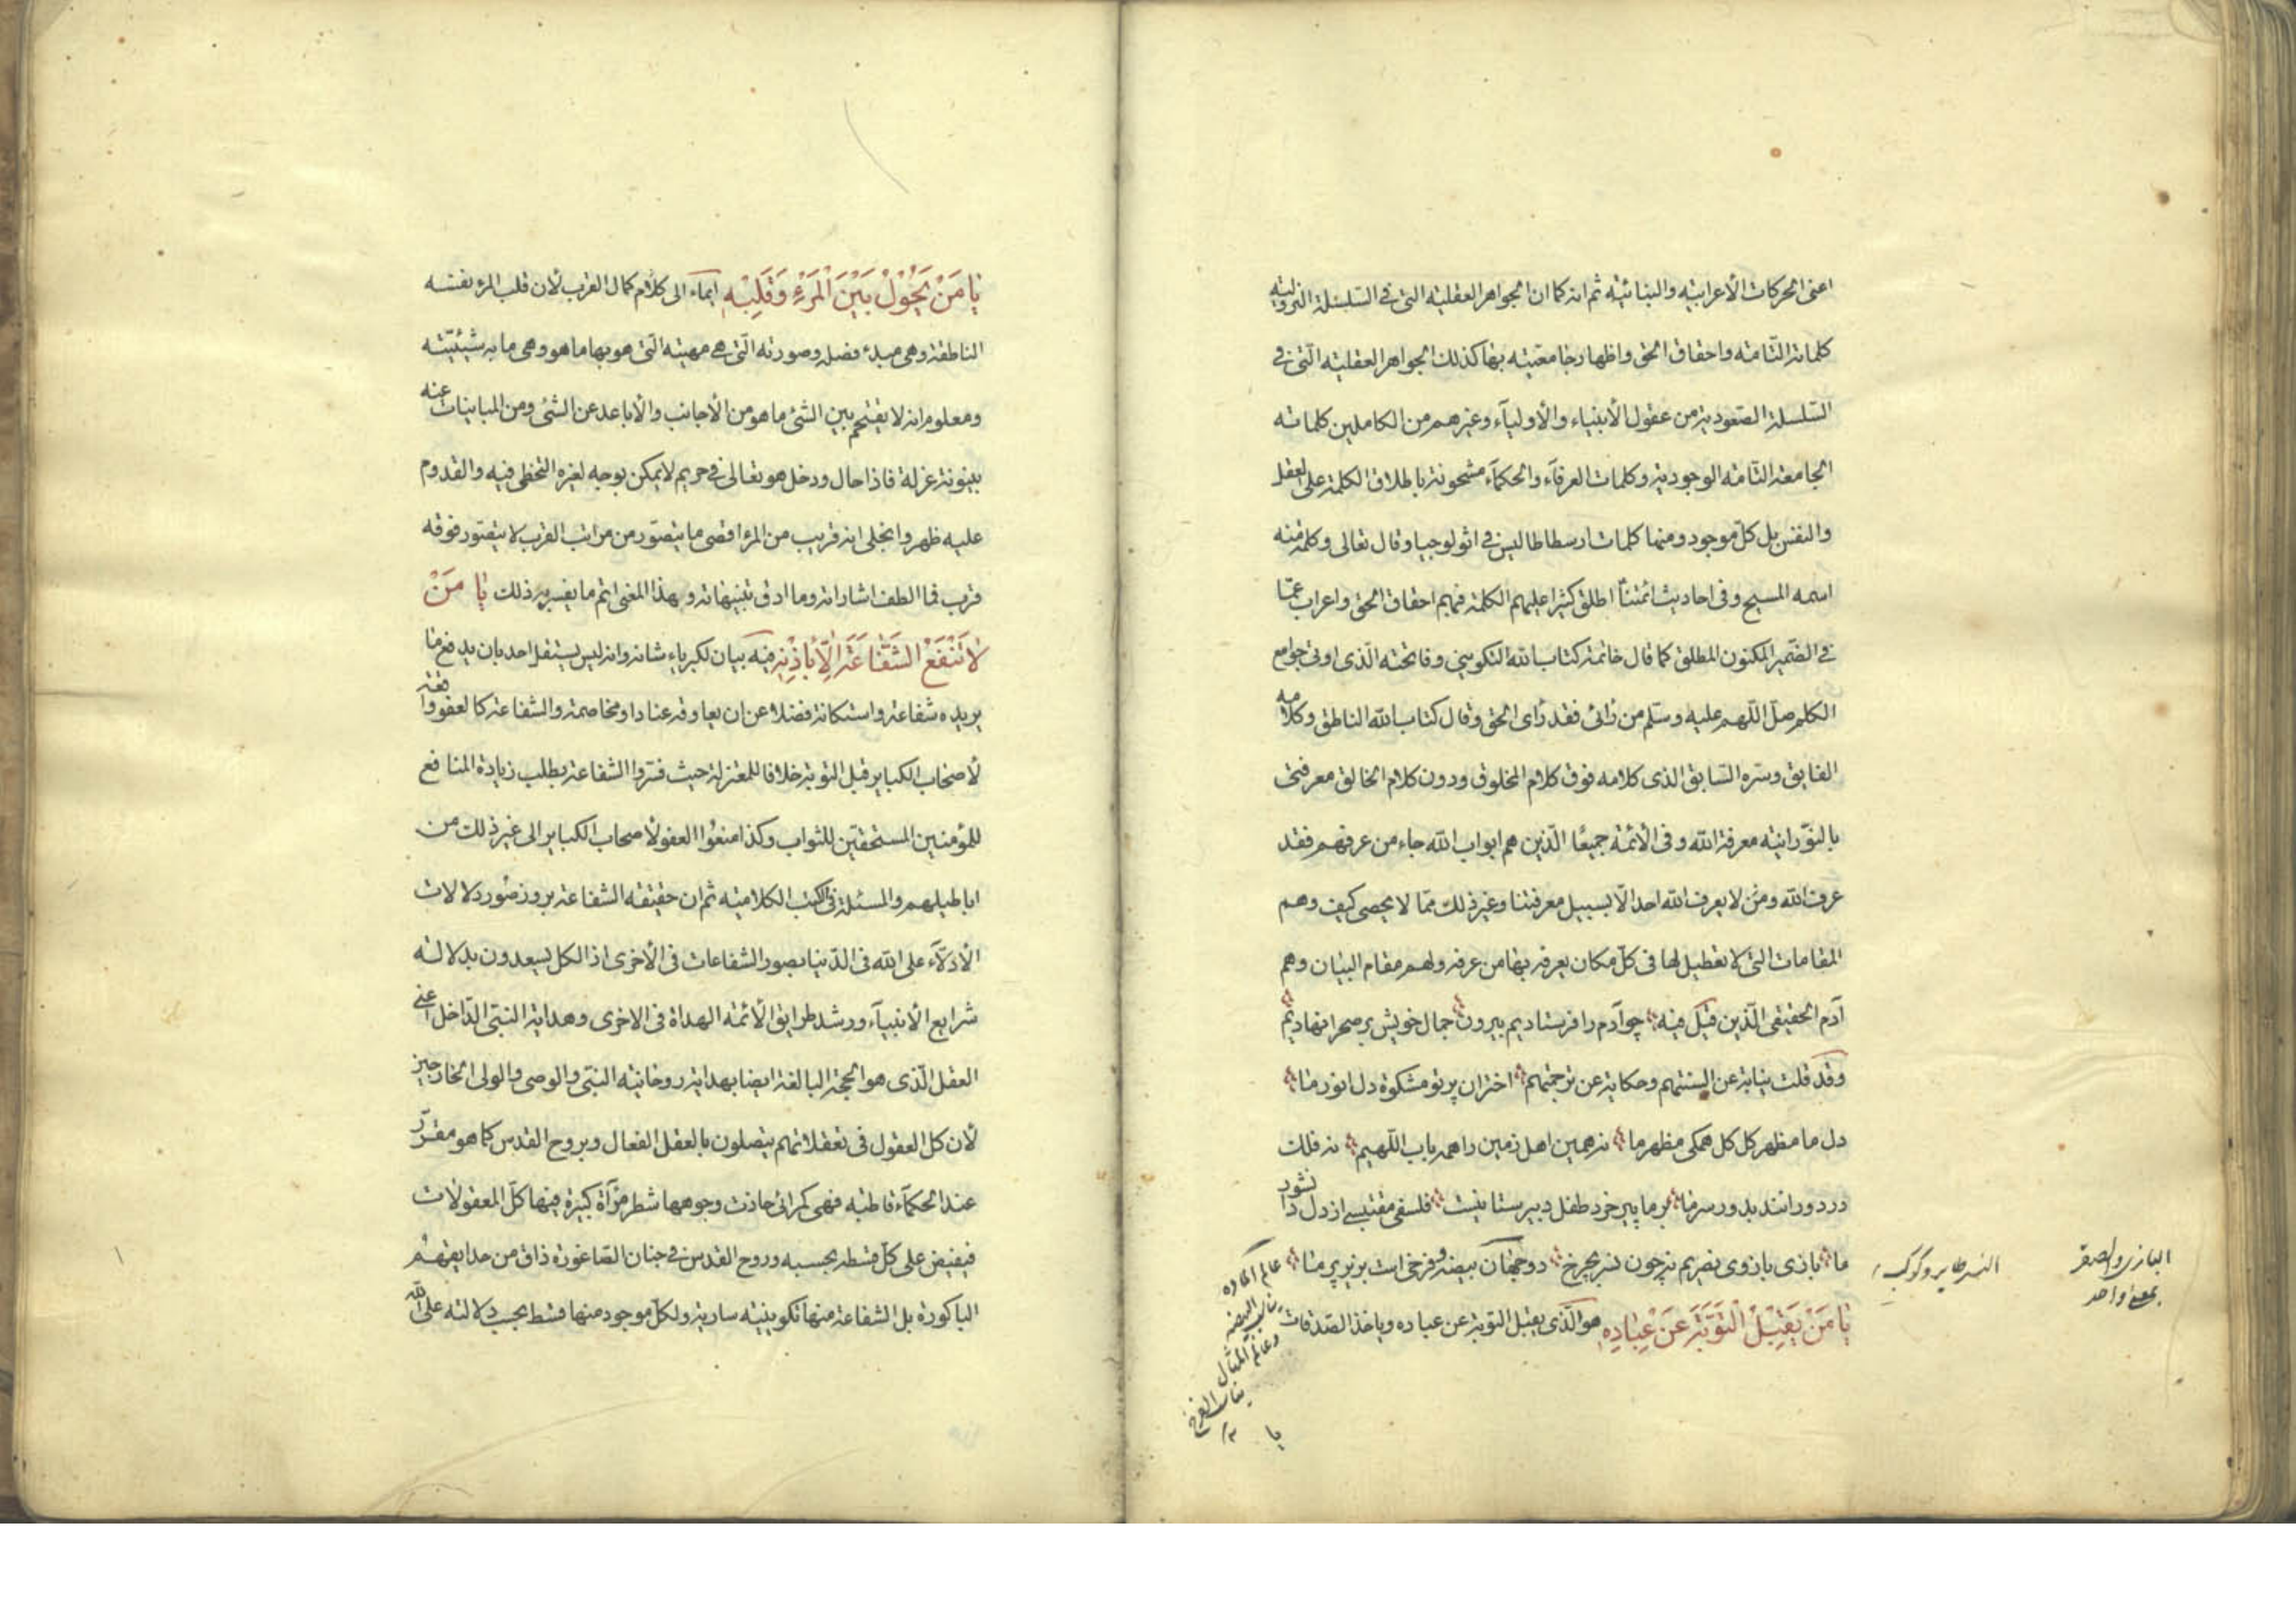 اعنی الحرکات الأعرابیّه والبنائیّه ثم انه کما ان الجواهر العقلیّه التی فی السّلسلة النزولیّه
کلماته التّامّه واحقاق الحق واظهار جامعیّته بها کذلک الجواهر العقلیّه الّتی فی
السّلسلة الصّعودیة من عقول الأنبیاء والأولیآء وغیرهم من الکاملین کلماته
الجامعة التّامّه الوجودیّة وکلمات العرفآء والحکمآء مشحونة باطلاق الکلمة علی العقل
والنفس بل کلّ موجود ومنها کلمات ارسطاطالیس فی اثولوجیا وقال تعالی وکلمة منه
اسمه المسیح وفی احادیث ائمّتنا اطلق کثیرا علیهم الکلمة فبهم احقاق الحق واعراب عمّا
فی الضّمیر المکنون المطلق کما قال خاتمة کتاب الله التکوینی وفاتحته الّذی اوتی جوامع
الکلم صلّ اللّهم علیه وسلّم من رانی فقد رای الحق وقال کتاب الله الناطق وکلامه
الفایق وسرّه السّابق الذی کلامه فوق کلام المخلوق ودون کلام الخالق معرفتی
بالنّورانیّه معرفة الله وفی الأئمّة جمیعًا الّذین هم ابواب الله جاء من عرفهم فقد
عرف الله ومن لا یعرف الله احد الّا بسبیل معرفتنا وغیر ذلک ممّا لا یحصی کیف وهم
المقامات التی لا تعطیل لها فی کلّ مکان یعرفه بها من عرفه ولهم مقام البیان وهم
آدم الحقیقی الّذین قیل فیه چو آدم را فرستادیم بیرون جمال خویش بر صحرا نهادیم
وقد قلت نیابة عن السنتهم وحکایة عن ترجمتهم اختران پرتو مشکوة دل انور ما
دل ما مظهر کل کل همکی مظهر ما نه همین اهل زمین را همه باب اللّهیم نه فلک
در دورانند بدور سر ما بر ما پیر خرد طفل دبیرستانیست فلسفی مقتبسی از دل دانشور
ما بازی بازوی نصریم نه چون نسر بچرخ دو جهان بیضه و فرخی است بزیر پر ما
یٰا مَنْ یَقْبَلُ التَّوْبَةَ عَنْ عِبٰادِهِ هو الّذی یقبل التوبة عن عباده ویاخذ الصّدقات
النسر طایر وکوکب
البازی والصقر
بمعنی واحد
عالم المادّه
بمثابة البیضه
وعالم المثال
بمثابة الفرخ
۱۲
یا
یٰا مَنْ یَحُوْلُ بَیْنَ الْمَرْءِ وَقَلْبِهِ ایماء الی کلام کمال القرب لأن قلب المرء نفسه
الناطقة وهی مبدء فصله وصورته الّتی هی مهیته التی هو بها ما هو وهی ما به شیئیّته
ومعلوم انه لا یقتحم بین الشئ ما هو من الأجانب والأباعد عن الشئ ومن المباینات عنه
بینونة عزلة فاذا حال ودخل هو تعالی فی حریم لا یمکن بوجه لغیره التخطی فیه والقدوم
علیه ظهر وانجلی انه قریب من المرء اقصی ما یتصوّر من مراتب القرب لا یتصوّر فوقه
قرب فما الطف اشاراته وما ادق تنبیهاته وبهذا المعنی اتم ما یفسر به ذلک یٰا مَنْ
لٰا تَنْفَعُ الشَّفٰاعَةُ اِلّٰا بِاِذْنِهِ فیه بیان لکبریاء شانه وانه لیس یستقل احد بان یدفع ما
یریده شفاعة واستکانة فضلا عن ان یعاوقه عنادا ومخاصمة والشفاعة کالعفو واقعة
لأصحاب الکبایر قبل التوبة خلافا للمعتزلة حیث فسّروا الشفاعة بطلب زیادة المنافع
للمؤمنین المستحقین للثواب وکذا منعوا العفو لأصحاب الکبایر الی غیر ذلک من
اباطیلهم والمسئلة فی الکتب الکلامیّه ثم ان حقیقه الشفاعة بروز صور دلالات
الأدلّآء علی الله فی الدّنیا بصور الشفاعات فی الأخری اذ الکل یسعدون بدلالة
شرایع الأنبیآء ورشد طرایق الأئمّه الهداة فی الاخری وهدایة النبّی الدّاخل اعنی
العقل الّذی هو الحجّة البالغة ایضا بهدایة روحانیّه النبّی والوصی والولی الخارجین
لأن کل العقول فی تعقلاتهم یتصلون بالعقل الفعال وبروح القدس کما هو مقرّر
عند الحکمآء قاطبه فهی کمرائی حاذت وجوهها شطر مرآة کبیرة فیها کلّ المعقولات
فیفیض علی کلّ قسطه بحسبه وروح القدس فی جنان الصّاغورة ذاق من حدایقهم
الباکورة بل الشفاعة منها تکوینیّه ساریة ولکلّ موجود منها قسط بحسب دلالته علی الله